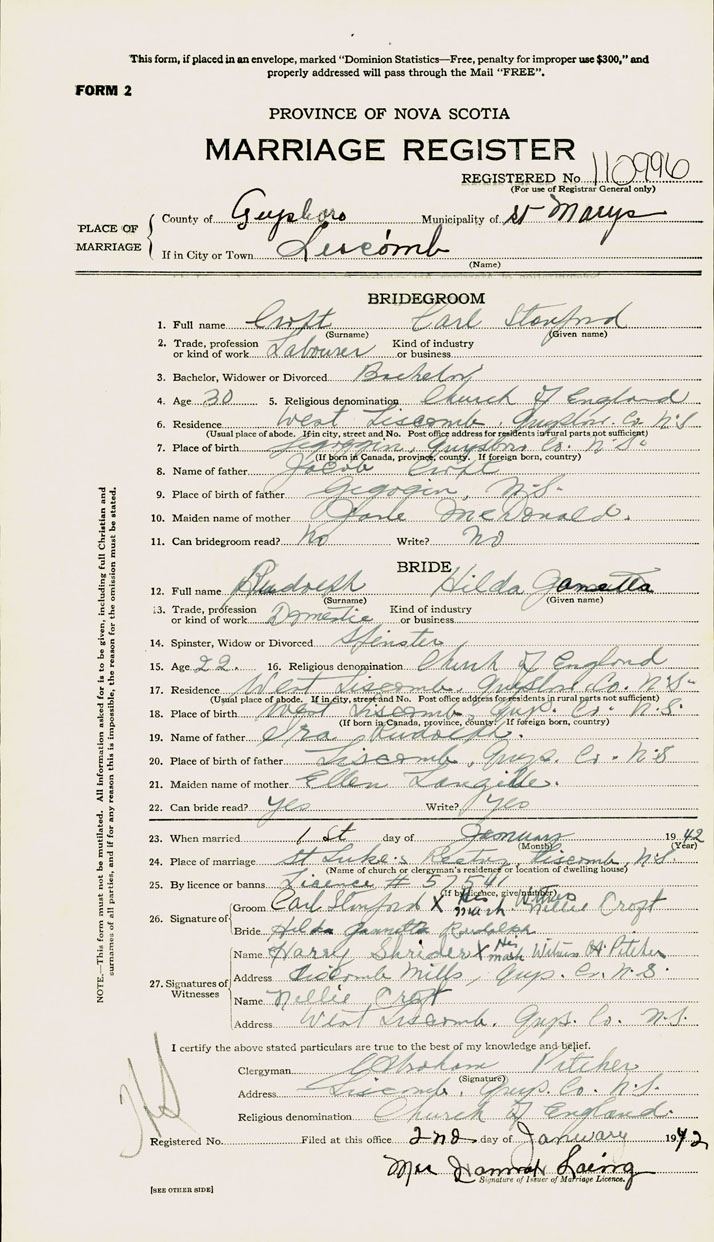 This form, if placed in an envelope, marked "Dominion Statistics—Free, penalty for improper use $300," and
properly addressed will pass through the Mail "FREE".
FORM 2
PROVINCE OF NOVA SCOTIA
MARRIAGE REGISTER
REGISTERED No. 110996
(For use of Registrar General only)
PLACE OF MARRIAGE
County of Guysboro Municipality of St Marys
If in City or Town Liscomb
(Name)
BRIDEGROOM
1. Full name Croft Carl Stanford
(Surname) (Given name)
2. Trade, profession or kind of work Labourer Kind of industry or business
3. Bachelor, Widower or Divorced Bachelor
4. Age 30 5. Religious denomination Church of England
6. Residence West Liscomb, Guysboro Co. N.S.
(Usual place of abode. If in city, street and No. Post office address for residents in rural parts not sufficient)
7. Place of birth Gegoggin, Guysboro Co. N.S.
(If born in Canada, province, county. If foreign born, country)
8. Name of father Jacob Croft
9. Place of birth of father Gegogin, N.S.
10. Maiden name of mother McDonald.
11. Can bridegroom read? No Write? No
BRIDE
12. Full name Rudolph Hilda Jametta
(Surname) (Given name)
13. Trade, profession or kind of work Domestic Kind of industry or business
14. Spinster, Widow or Divorced Spinster
15. Age 22. 16. Religious denomination Church of England
17. Residence West Liscomb, Guysboro Co. N.S.
(Usual place of abode. If in city, street and No. Post office address for residents in rural parts not sufficient)
18. Place of birth West Liscomb, Guys. Co. N.S.
(If born in Canada, province, county. If foreign born, country)
19. Name of father Ira Rudolph.
20. Place of birth of father Liscomb, Guys. Co. N.S
21. Maiden name of mother Ellen Langille.
22. Can bride read? yes Write? yes
23. When married 1st day of January 1942
(Month) (Year)
24. Place of marriage St Luke's Rectory, Liscomb, N.S.
(Name of church or clergyman's residence or location of dwelling house)
25. By licence or banns Licence #
(If by licence, give number)
26. Signature of
Groom Carl Stanford X His mark Witness Nellie Croft
Bride Hilda Rudolph
27. Signatures of Witnesses
Name Harry Shrider X His mark Witness A. Pitcher
Address Liscomb Mills, Guys. Co. N.S.
Name Nellie Croft
Address West Liscomb, Guys. Co. N.S.
I certify the above stated particulars are true to the best of my knowledge and belief.
Clergyman Abraham Pitcher
(Signature)
Address Liscomb, Guys. Co. N.S.
Religious denomination Church of England.
Registered No. Filed at this office 2nd day of January 1942
Mrs Hannah Laing
Signature of Issuer of Marriage Licence.
[SEE OTHER SIDE]
NOTE.—This form must not be mutilated. All information asked for is to be given, including full Christian and
surnames of all parties, and if for any reason this is impossible, the reason for the omission must be stated.